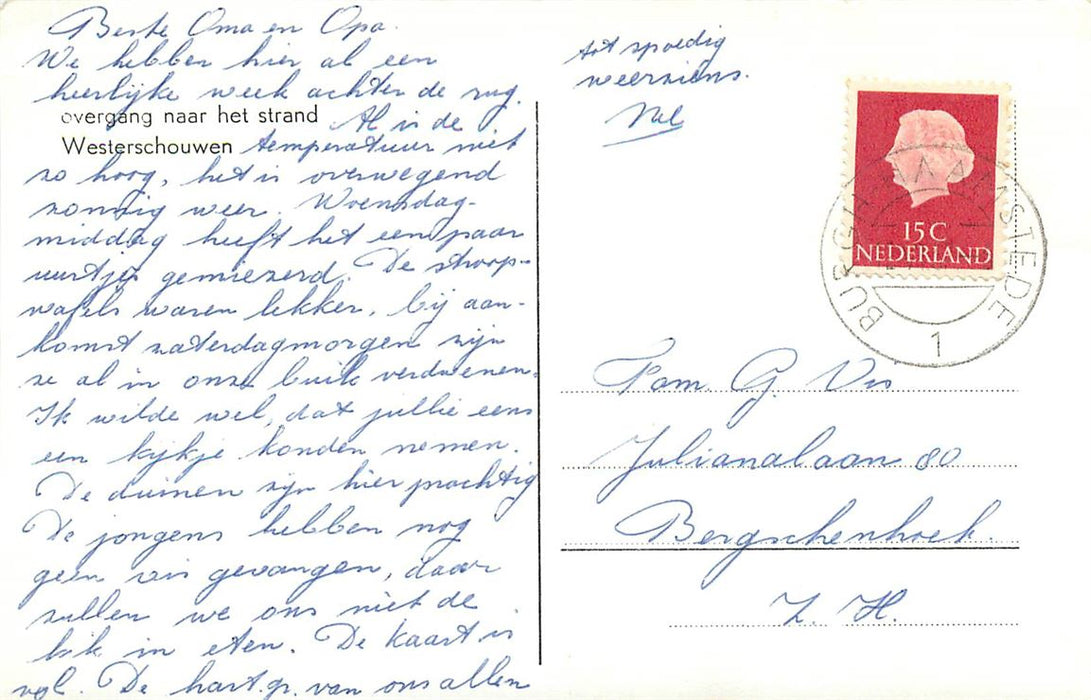 Beste Oma en Opa.
We hebben hier al een
heerlijke week achter de rug.
overgang naar het strand
Westerschouwen
Al is de
temperatuur niet
zo hoog, het is overwegend
zonnig weer. Woensdag-
middag heeft het een paar
uurtjes gemiezerd. De stroop-
wafels waren lekker, bij aan-
komst zaterdagmorgen zijn
ze al in onze buik verdwenen.
Ik wilde wel, dat jullie eens
een kijkje konden nemen.
De duinen zijn hier prachtig
De jongens hebben nog
geen vis gevangen, daar
zullen we ons niet de
bik in eten. De kaart is
vol. De hart. gr. van ons allen
tot spoedig
weerziens.
15 C
NEDERLAND
BURGH-HAAMSTEDE
1
Fam. G. Vis
Julianalaan 80
Bergschenhoek.
Z. H.